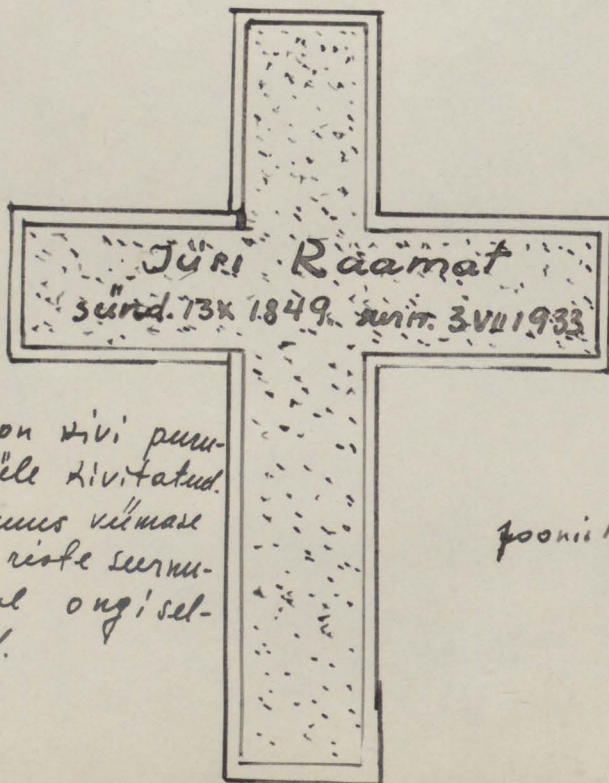 Jüri Raamat
sünd. 13 X 1849. surn. 3 VII 1933
on kivi puru-
üle kivitatud.
viimase
riste surnu-
ongi sel-
joonis